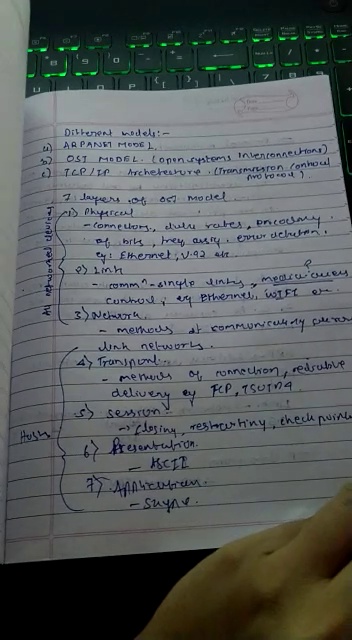 Different models:-
a) ARPANET MODEL.
b) OSI MODEL. (open systems interconnections)
c) TCP/IP Architecture. (Transmission control protocol)
7 layers of OSI model
1) Physical
- connectors, data rates, encoding
of bits,
eg: Ethernet, V.92 etc.
2) Link
- comm^n - single links, access
control, eg Ethernet, WIFI etc.
3) Network
- methods of communicating
link networks.
All networked devices
4) Transport.
- methods of connection,
delivery eg TCP,
5) Session
-> closing, restarting, checkpoints
6) Presentation.
- ASCII
7) Application.
- Skype.
Hosts